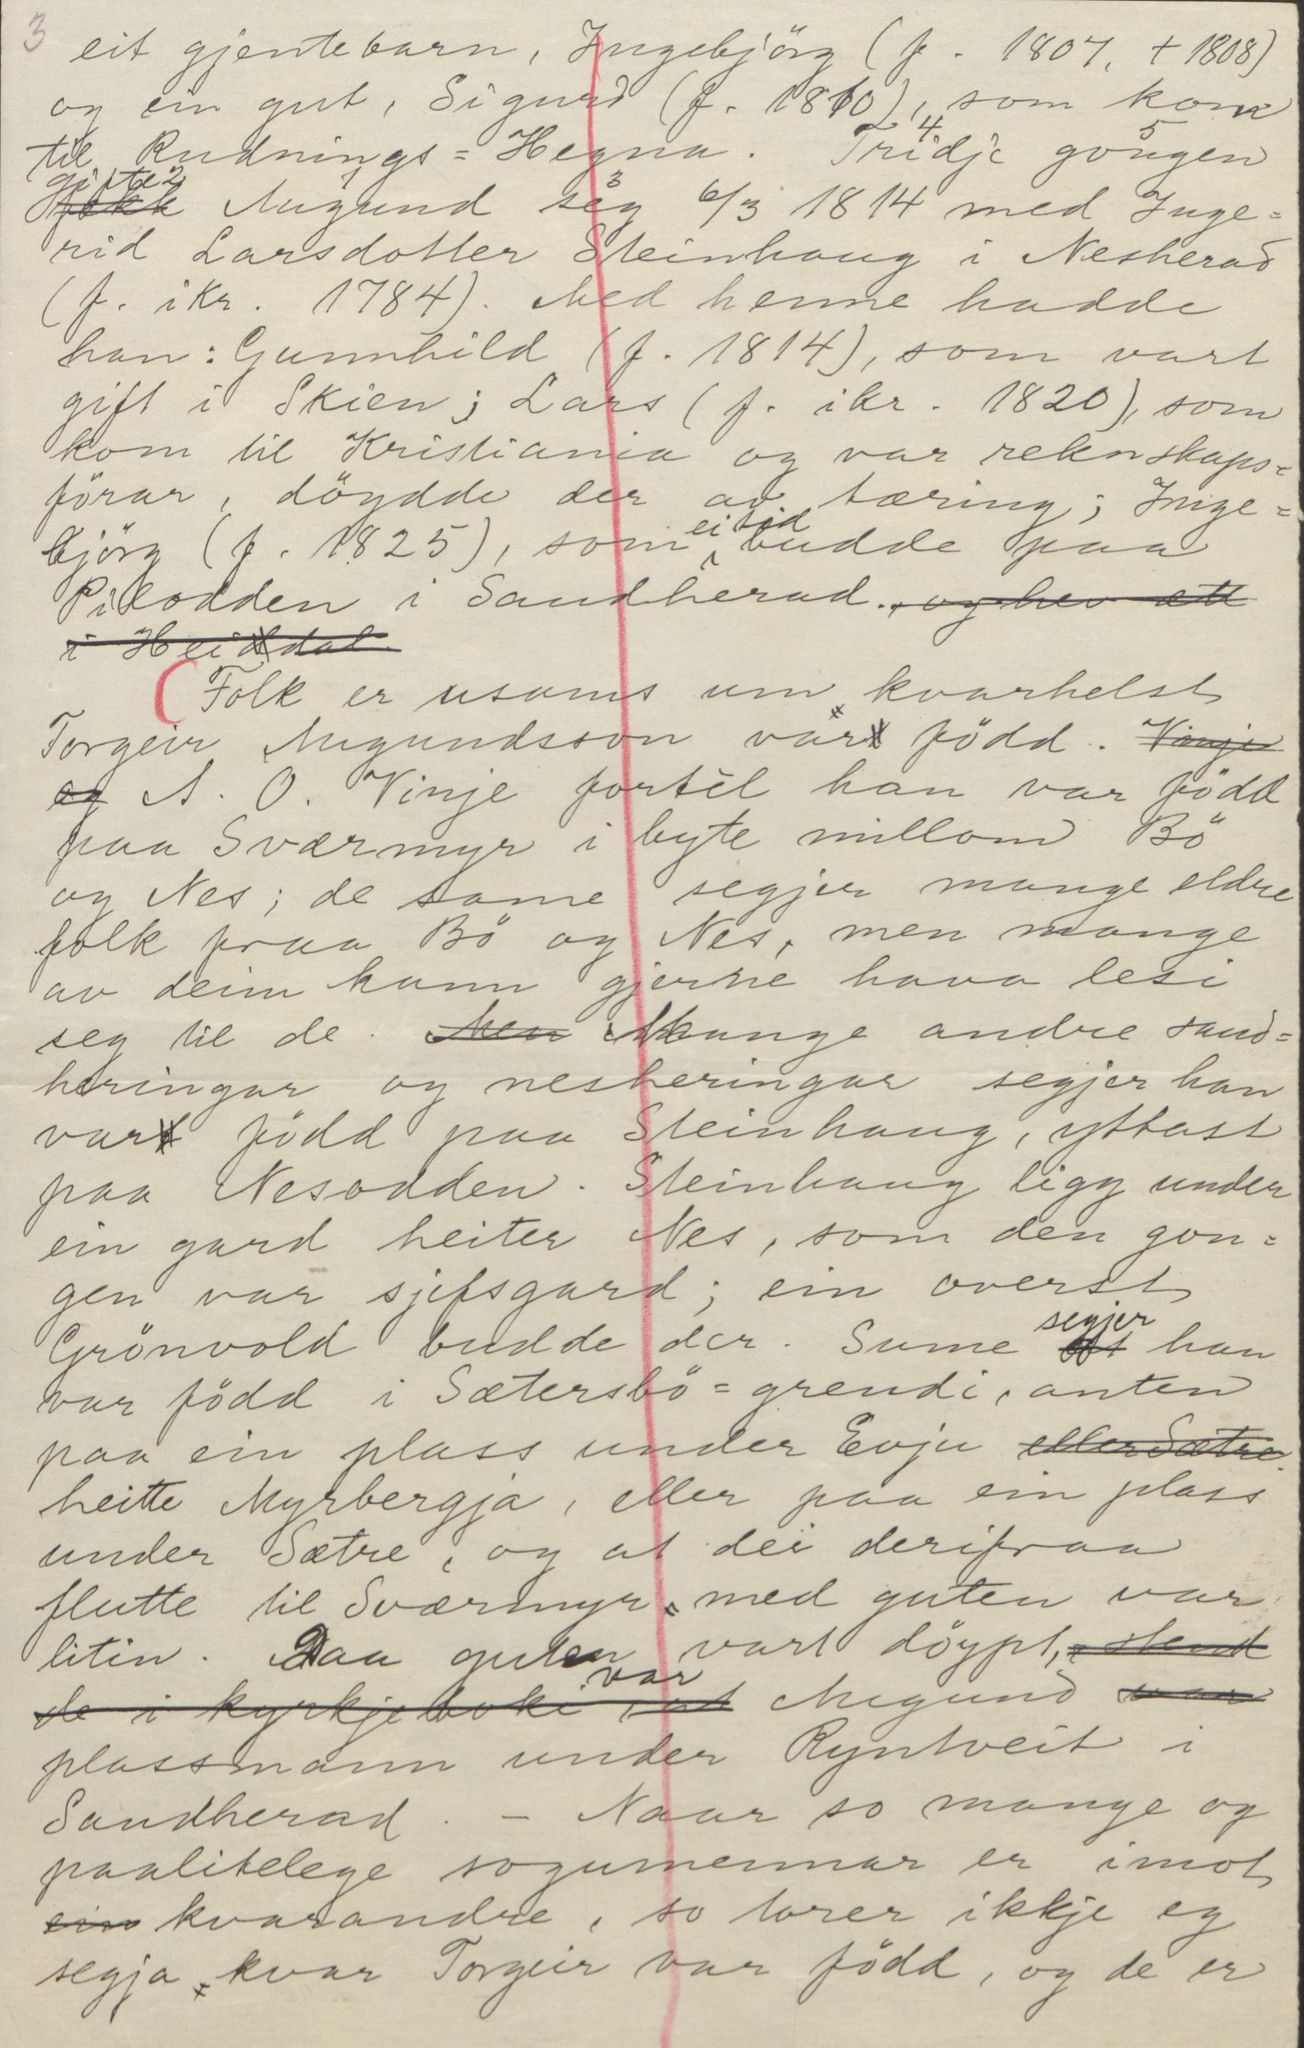 3 eit gjentebarn, Ingebjörg (f. 1807, + 1808)
og ein gut, Sigurd (f. 1810), som kom
til Rudnings=Hegna. Tridje gongen
4 5
gifte 2 1 3
fekk Augund seg 6/3 1814 med Inge=
rid Larsdotter Steinhaug i Nesherad
(f. ikr. 1784). Med henne hadde
han: Gunnhild (f. 1814), som vart
gift i Skien; Lars (f. ikr. 1820), som
kom til Kristiania og var reknskaps=
förar, döydde der av tæring; Inge=
björg (f. 1825), som ei tid budde paa
Pilodden i Sandherad., og hev ætt
i Heiddal.
(Folk er usams um kvarhelst
Torgeir Augundsson vart född. Vinje
og A. O. Vinje fortel han var född
paa Sværmyr i byte millom Bö
og Nes; de same segjer mange eldre
folk fraa Bö og Nes, men mange
av deim kann gjerne hava lesi
seg til de. Men Mange andre sand=
heringar og nesheringar segjer han
vart född paa Steinhaug, yttast
paa Nesodden. Steinhaug ligg under
ein gard heiter Nes, som den gon=
gen var sjefsgard; ein overst
Grönvold budde der. Sume segjer han
var född i Sætersbö=grendi, anten
paa ein plass under Evju eller Sætre
heitte Myrbergja, eller paa ein plass
under Sætre, og at dei derifraa
flutte til Sværmyr med guten var
litin. Daa guten vart döypt, stend
de i kyrkjeboki, at var Augund var
plassmann under Ryntveit i
Sandherad. – Naar so mange og
paalitelege sogumennar er imot
ein kvarandre, so torer ikkje eg
segja kvar Torgeir var född, og de er